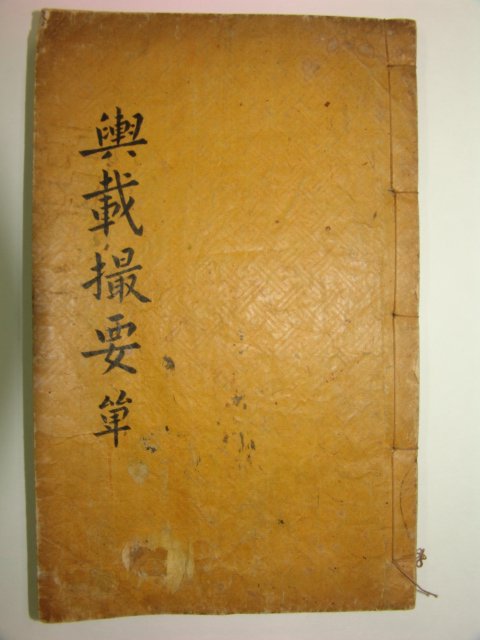 輿載撮要 単